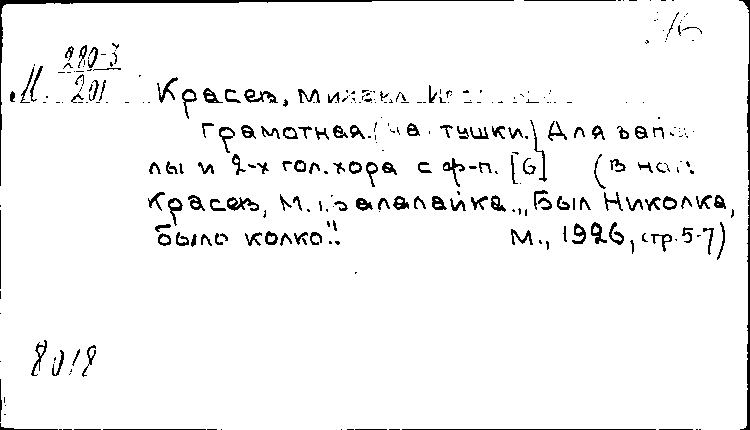 М. 280-3
201
Красев, Михаил
Грамотная. (Частушки.) Для запева-
лы и 2-х гол. хора с ф-п. [G] (В нап.
Красев, М. Балалайка. „Был Николка,
было колко". М., 1926, стр. 5-7)
8018